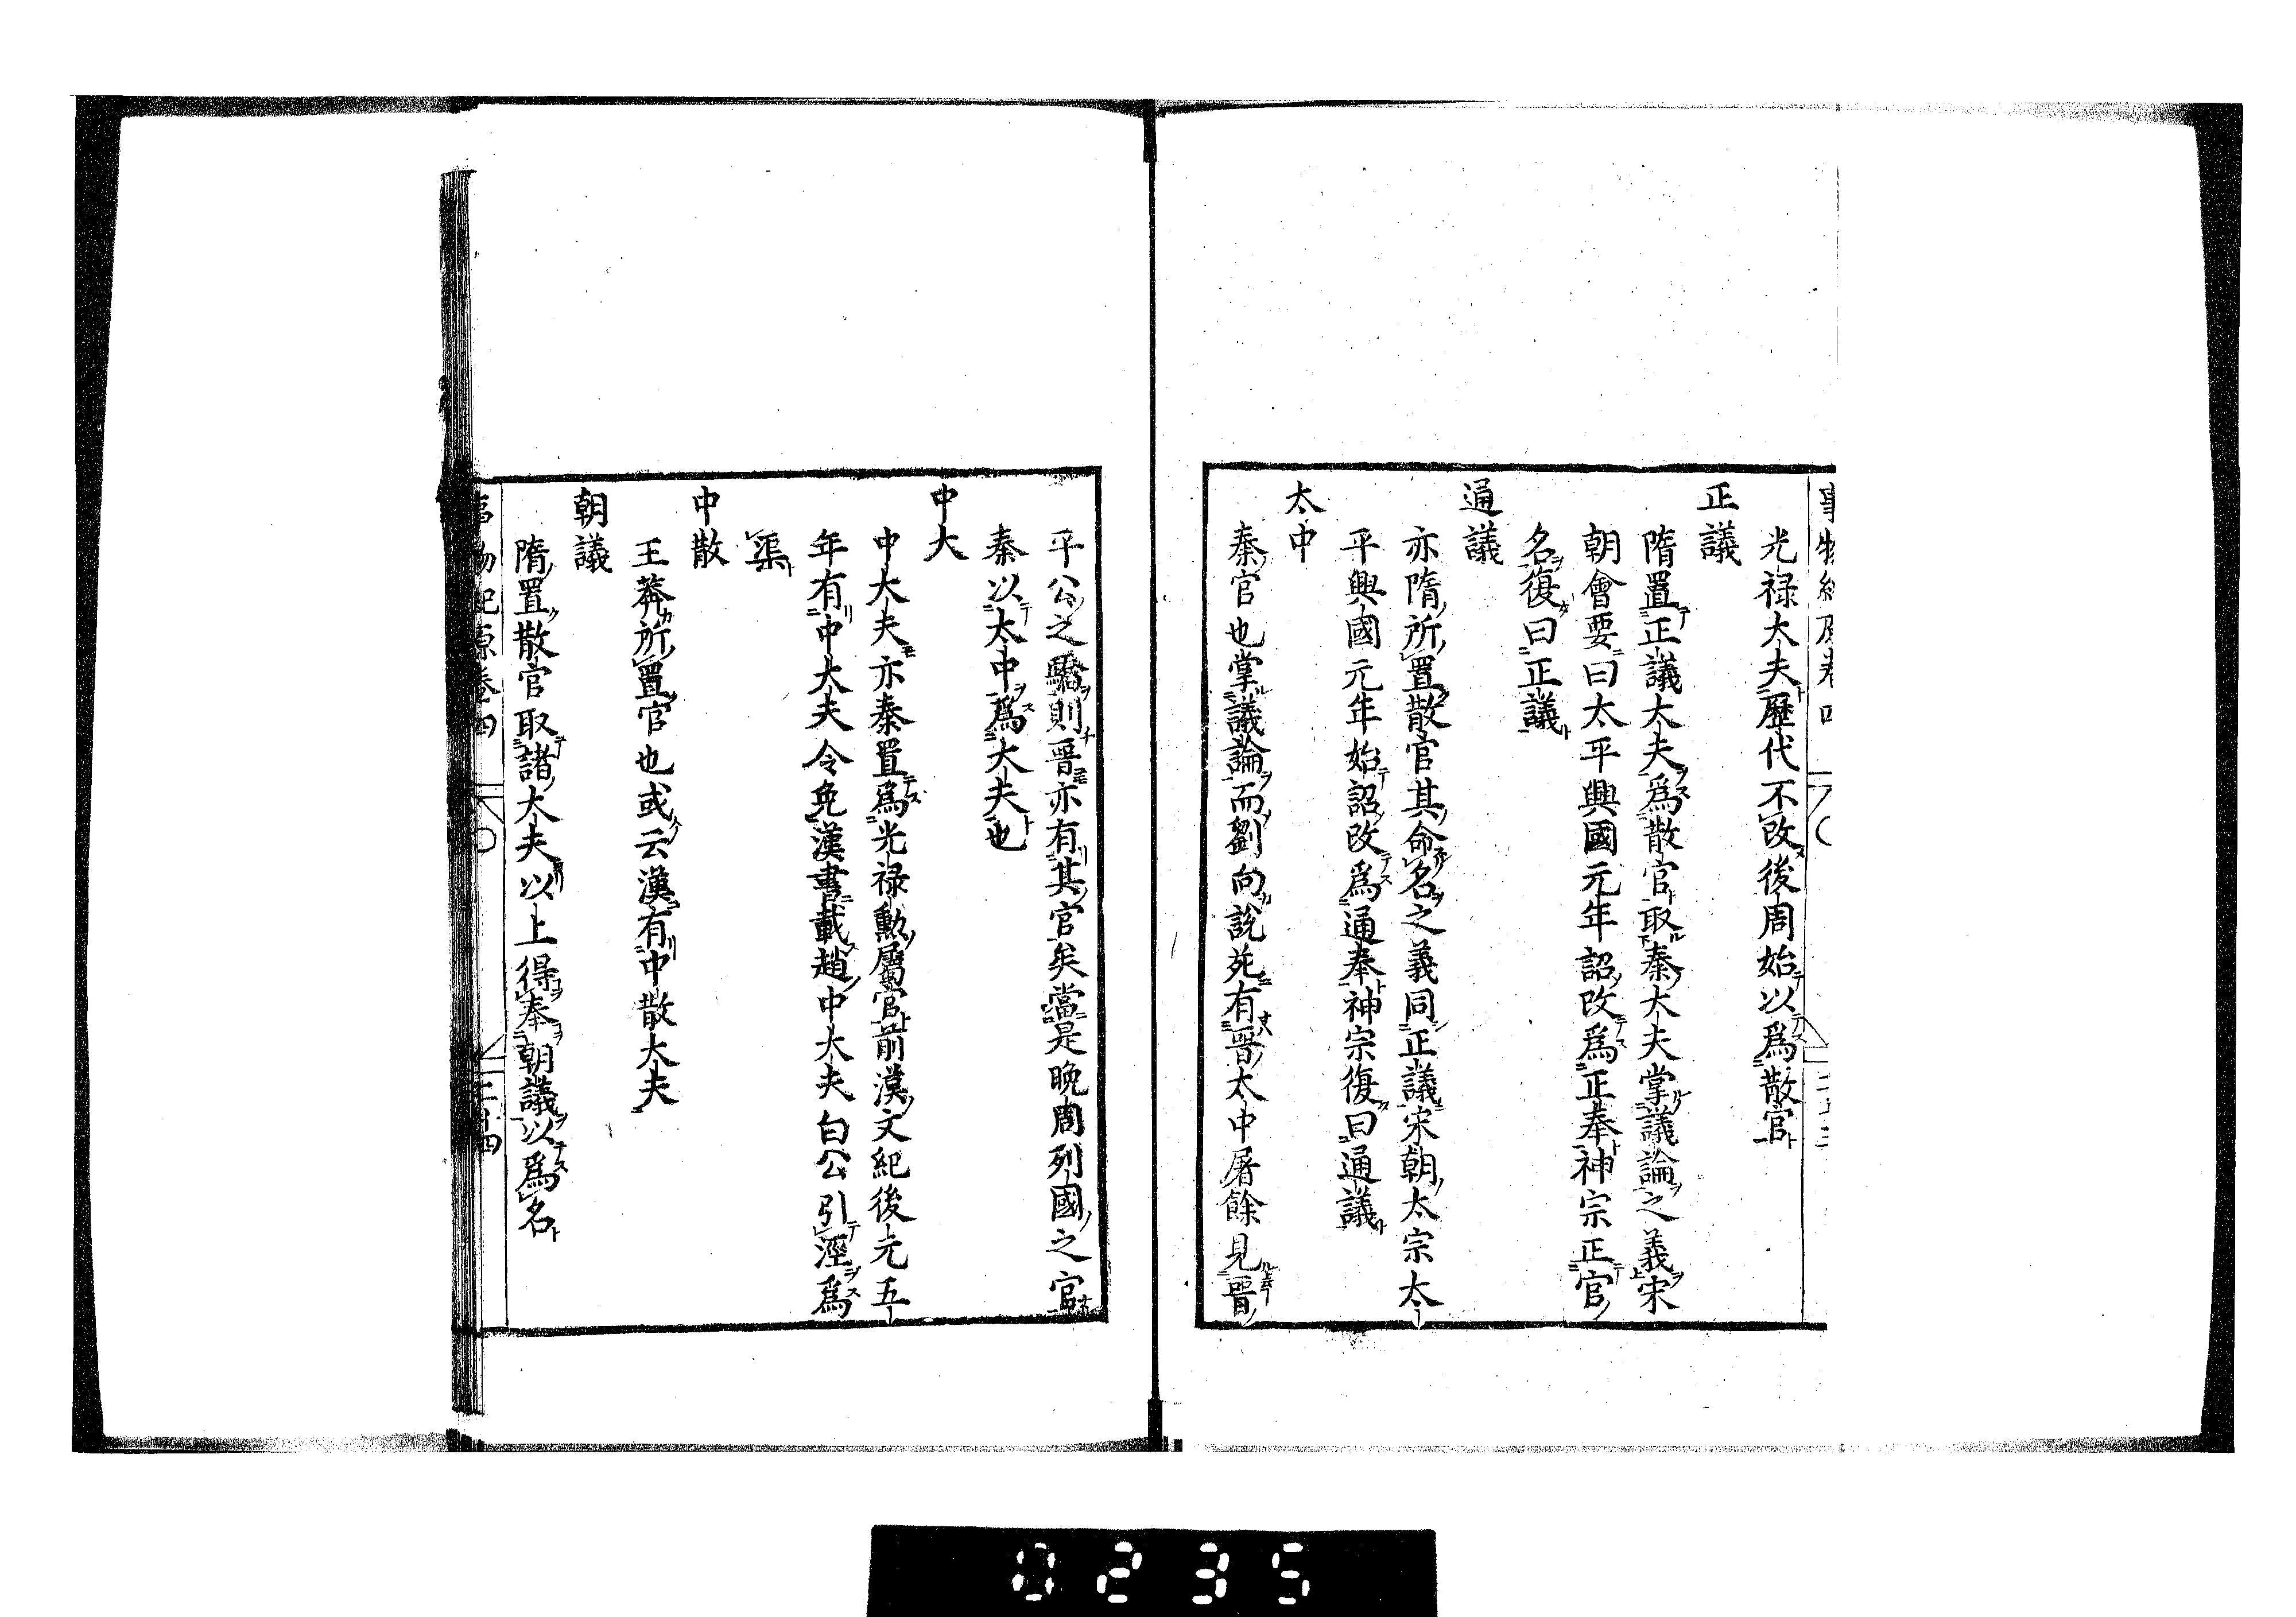 事物紀原卷四
光禄大夫歷代不改後周始以爲散官
正議
隋置正議大夫爲散官取秦大夫掌議論之義宋
朝會要曰太平興國元年詔改爲正奉神宗正官
名復曰正議
通議
亦隋所置散官其命名之義同正議宋朝太宗太
平興國元年始詔改爲通奉神宗復曰通議
太中
秦官也掌議論而劉向説苑有晋太中屠餘見晋
平公之驕則晋亦有其官矣當是晚周列國之官
秦以太中爲大夫也
中大
中大夫亦秦置爲光禄勲屬官前漢文紀後元五
年有中大夫令免漢書載趙中大夫白公引涇爲
渠
中散
王莽所置官也或云漢有中散大夫
朝議
隋置散官取諸大夫以上得奉朝議以爲名
事物紀原卷四
二十四
0235